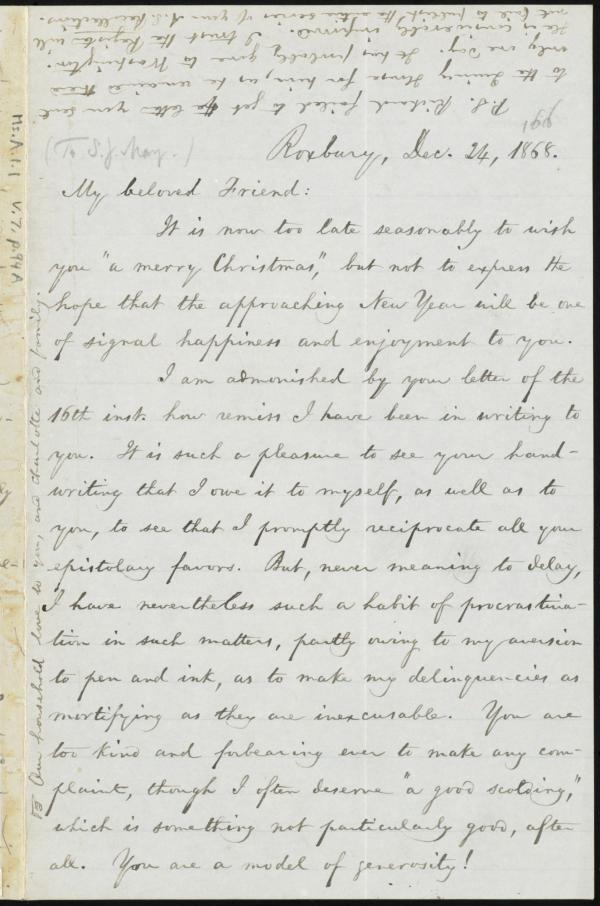 P.S. Richard failed to get the letter you sent
to the Quincy House for him, as he remained there
only one day. He has probably gone to Washington.
He is considerably improved. I trust the Register will
not fail to publish the entire series of your A.S. Recollections.
168
(To S. J. May.)
Roxbury, Dec. 24, 1868.
My beloved Friend:
It is now too late seasonably to wish
you "a merry Christmas," but not to express the
hope that the approaching New Year will be one
of signal happiness and enjoyment to you.
I am admonished by your letter of the
16th inst. how remiss I have been in writing to
you. It is such a pleasure to see your hand-
writing that I owe it to myself, as well as to
you, to see that I promptly reciprocate all your
epistolary favors. But, never meaning to delay,
I have nevertheless such a habit of procrastina-
tion in such matters, partly owing to my aversion
to pen and ink, as to make my delinquencies as
mortifying as they are inexcusable. You are
too kind and forbearing ever to make any com-
plaint, though I often deserve "a good scolding,"
which is something not particularly good, after
all. You are a model of generosity!
Our household love to you, and Charlotte and family.
Ms.A.1.1 V.7, p94A